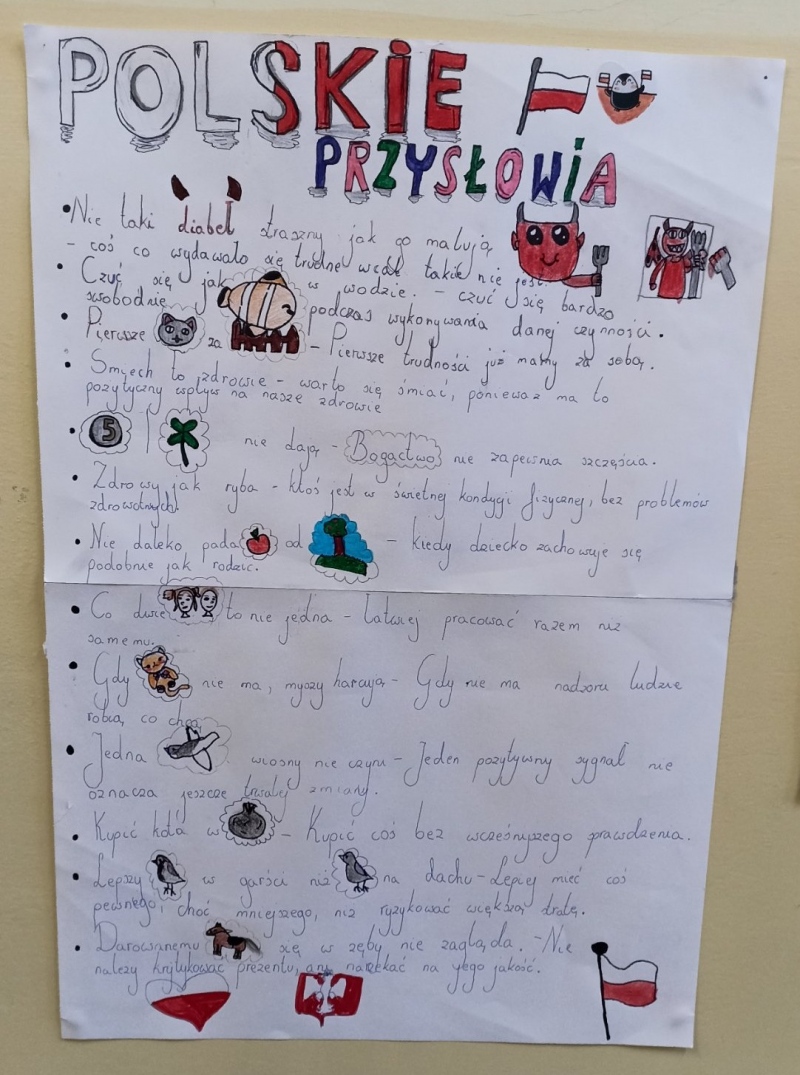 POLSKiE
PRZYSŁOWiA
•Nie taki diabeł straszny jak go malują
- coś co wydawało się trudne wcale takie nie jest.
• Czuć się jak w wodzie. - czuć się bardzo
swobodnie podczas wykonywania danej czynności.
• Pierwsze za - Pierwsze trudności już mamy za sobą.
• Śmiech to zdrowie - warto się śmiać, ponieważ ma to
pozytyczny wpływ na nasze zdrowie
• 5 nie dają - Bogactwo nie zapewnia szczęścia.
• Zdrowy jak ryba - ktoś jest w świetnej kondycji fizycznej, bez problemów
zdrowotnych.
• Nie daleko pada od - kiedy dziecko zachowuje się
podobnie jak rodzic.
• Co dwie to nie jedna - Łatwiej pracować razem niż
samemu.
• Gdy nie ma, myszy harcują - Gdy nie ma nadzoru ludzie
robią, co chcą
• Jedna wiosny nie czyni - Jeden pozytywny sygnał nie
oznacza jeszcze trwałej zmiany.
• Kupić kota w - Kupić coś bez wcześniejszego prawdzenia.
• Lepszy w garści niż na dachu - Lepiej mieć coś
pewnego, choć mniejszego, niż ryzykować większą stratę.
• Darowanemu się w zęby nie zagląda. - Nie
należy krytykować prezentu, ani narzekać na jego jakość.